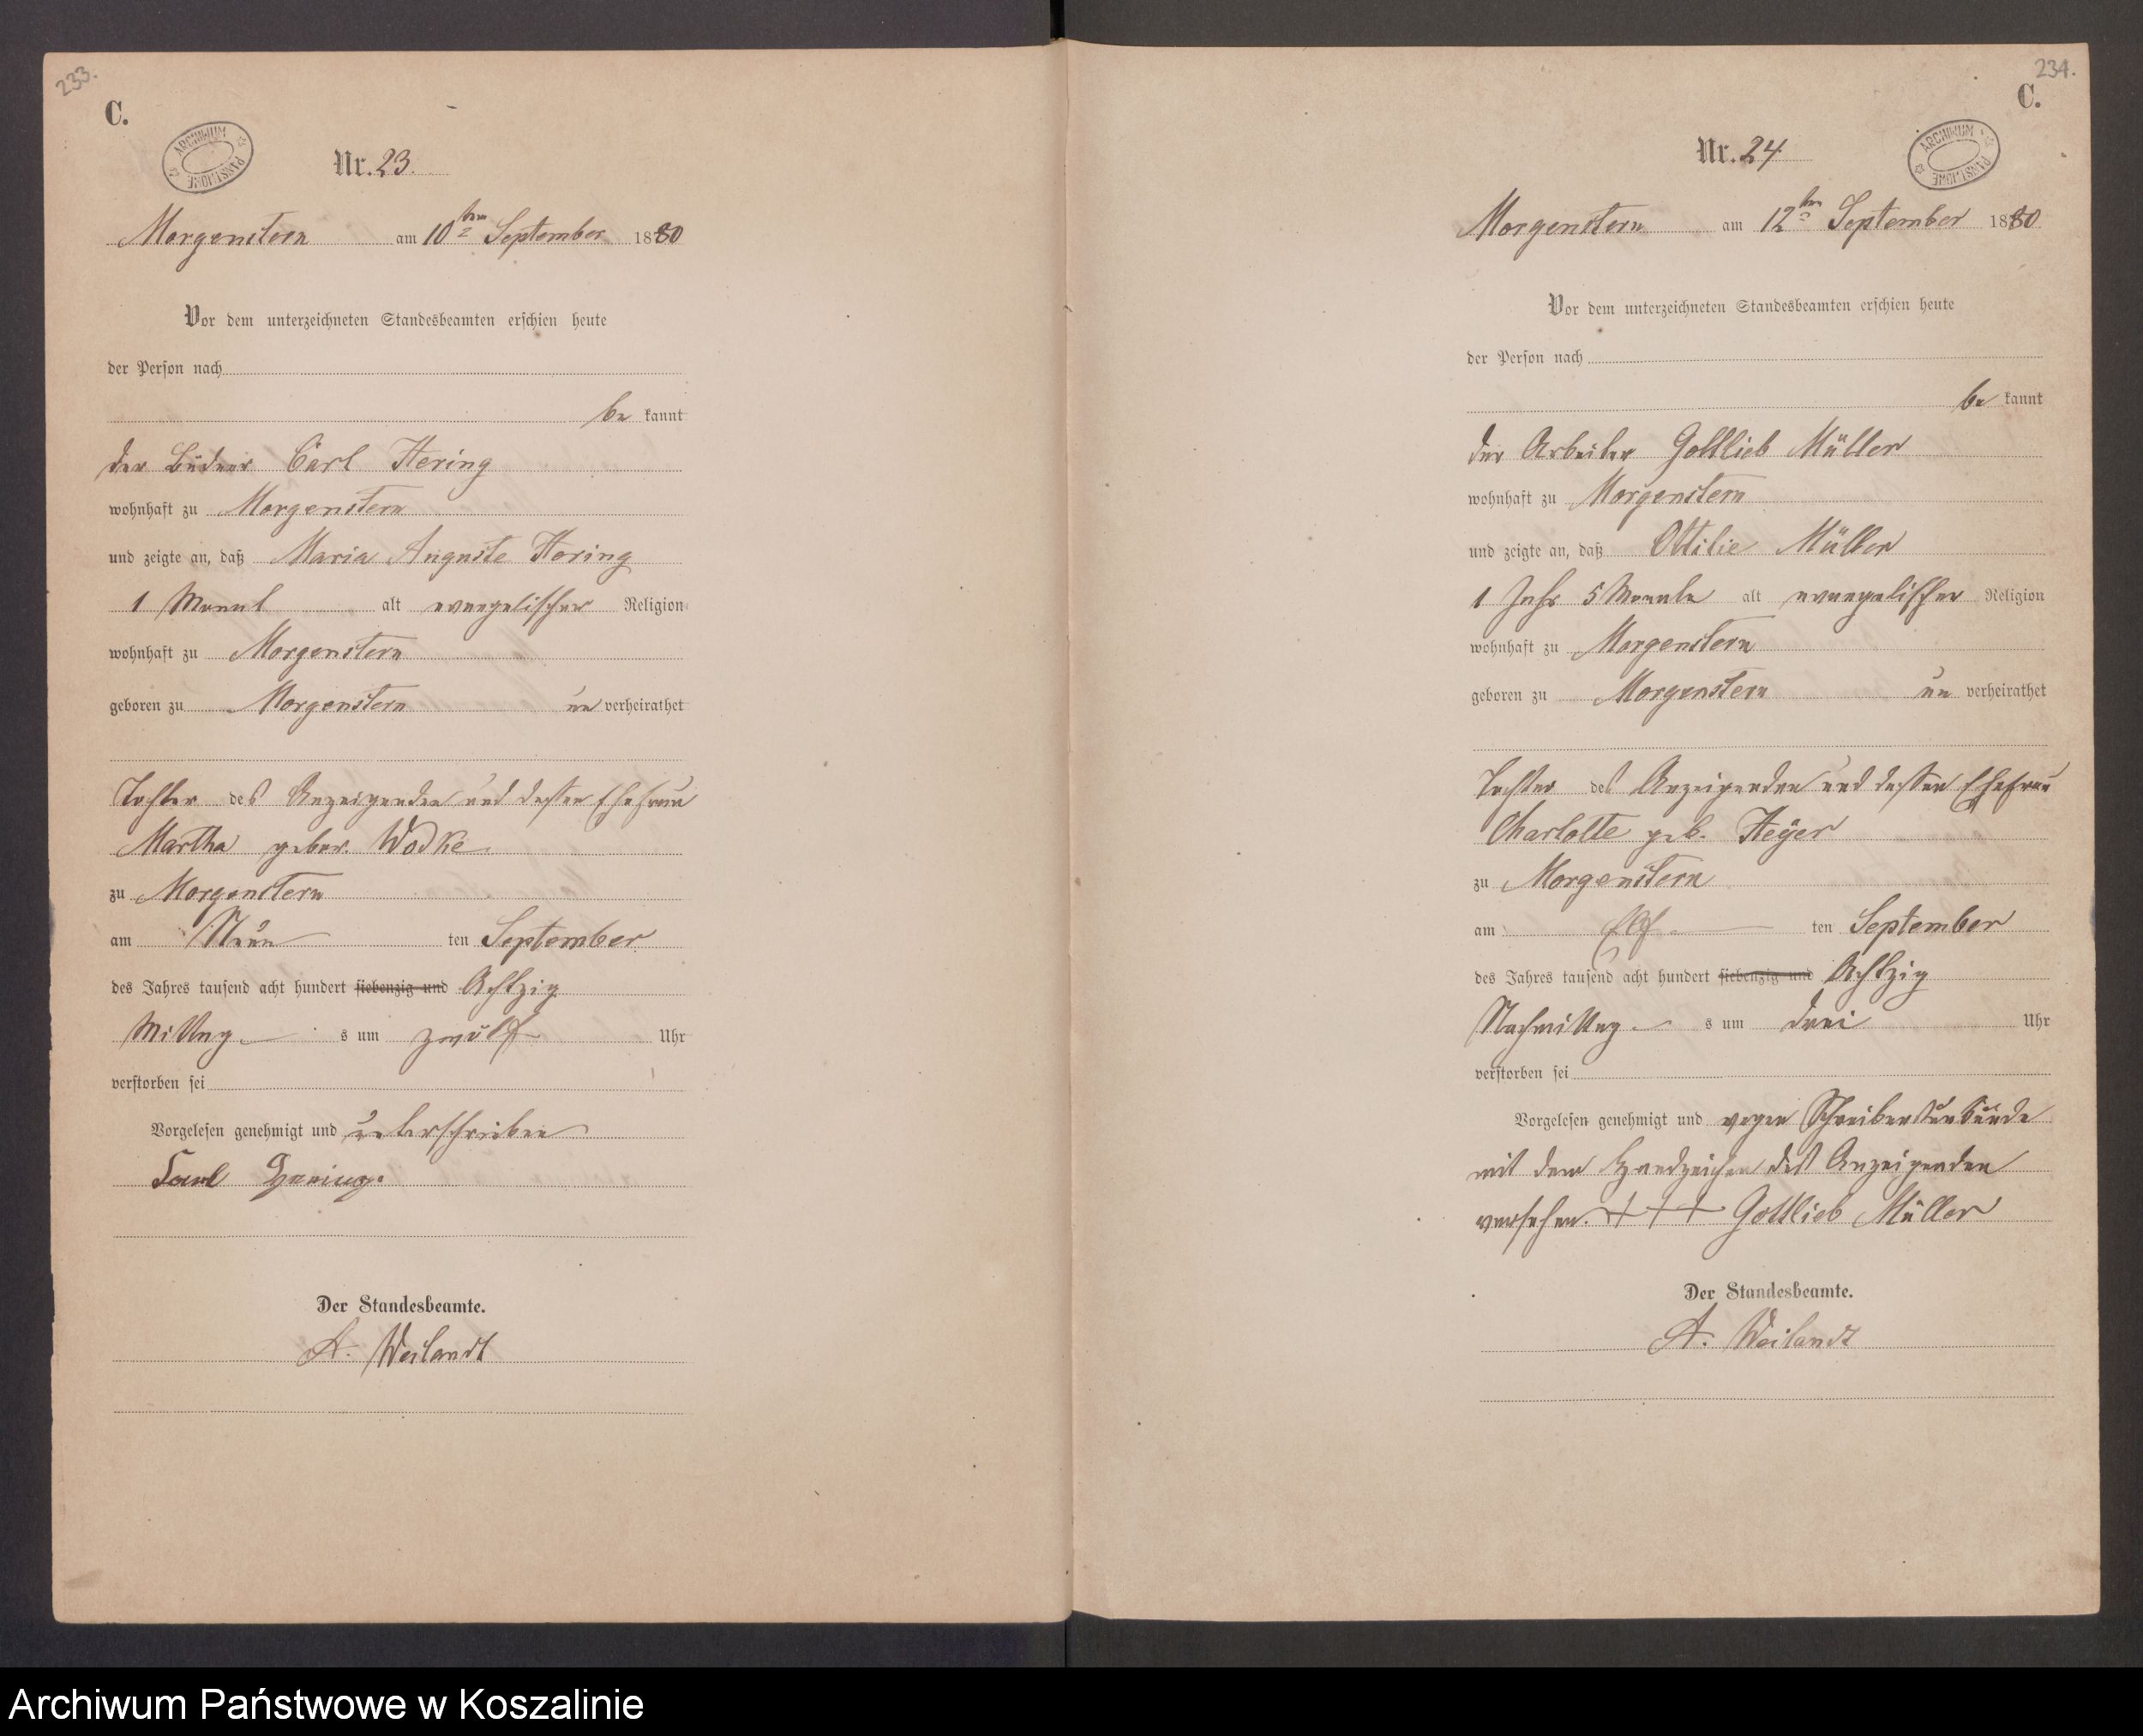 233.
C.
ARCHIWUM PAŃSTWOWE
Nr. 23.
Morgenstern am 10ten September 1880
Vor dem unterzeichneten Standesbeamten erschien heute
der Person nach
be kannt
der Büdner Carl Hering
wohnhaft zu Morgenstern
und zeigte an, daß Maria Auguste Hering
1 Monat alt evangelischer Religion
wohnhaft zu Morgenstern
geboren zu Morgenstern un verheirathet
Tochter des Anzeigenden und dessen Ehefrau
Martha gebor. Wodke
zu Morgenstern
am Neun ten September
des Jahres tausend acht hundert siebenzig und Achtzig
Mittag s um zwölf Uhr
verstorben sei
Vorgelesen genehmigt und unterschrieben
Carl Hering.
Der Standesbeamte.
A. Weilandt
234.
C.
ARCHIWUM PAŃSTWOWE
Nr. 24
Morgenstern am 12ten September 1880
Vor dem unterzeichneten Standesbeamten erschien heute
der Person nach
be kannt
der Arbeiter Gottlieb Müller
wohnhaft zu Morgenstern
und zeigte an, daß Ottilie Müller
1 Jahr 5 Monate alt evangelischer Religion
wohnhaft zu Morgenstern
geboren zu Morgenstern un verheirathet
Tochter des Anzeigenden und dessen Ehefrau
Charlotte geb. Heyer
zu Morgenstern
am Elf ten September
des Jahres tausend acht hundert siebenzig und Achtzig
Nachmittag s um drei Uhr
verstorben sei
Vorgelesen genehmigt und wegen Schreibensunkunde
mit dem Handzeichen des Anzeigenden
versehen. + + + Gottlieb Müller
Der Standesbeamte.
A. Weilandt
Archiwum Państwowe w Koszalinie